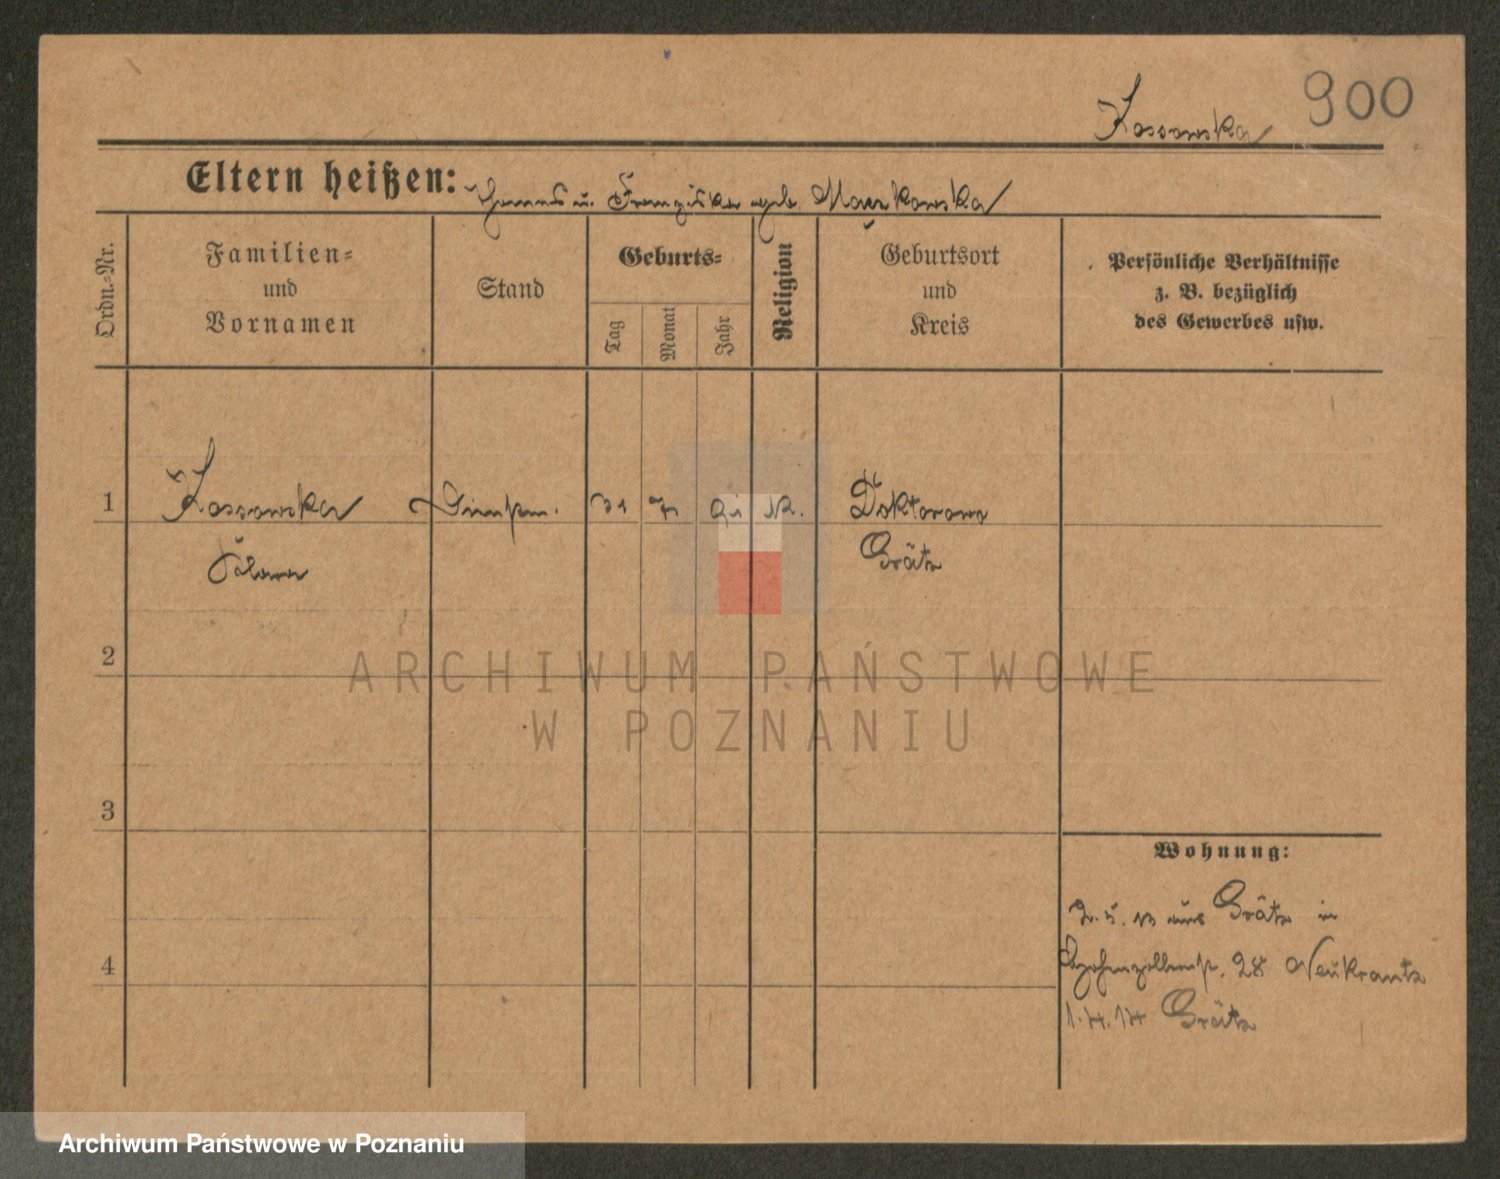 Kossowska 900
Eltern heißen: u. Franziska geb. Mackowska
Ordn.-Nr.
Familien-
und
Vornamen
Stand
Geburts-
Tag
Monat
Jahr
Religion
Geburtsort
und
Kreis
Persönliche Verhältnisse
z. B. bezüglich
des Gewerbes usw.
1 Kossowska 7 Doktorowo
Grätz
2
3
4
Wohnung:
aus Grätz in
28 Neukrantz
1.4.14 Grätz
ARCHIWUM PAŃSTWOWE
W POZNANIU
Archiwum Państwowe w Poznaniu